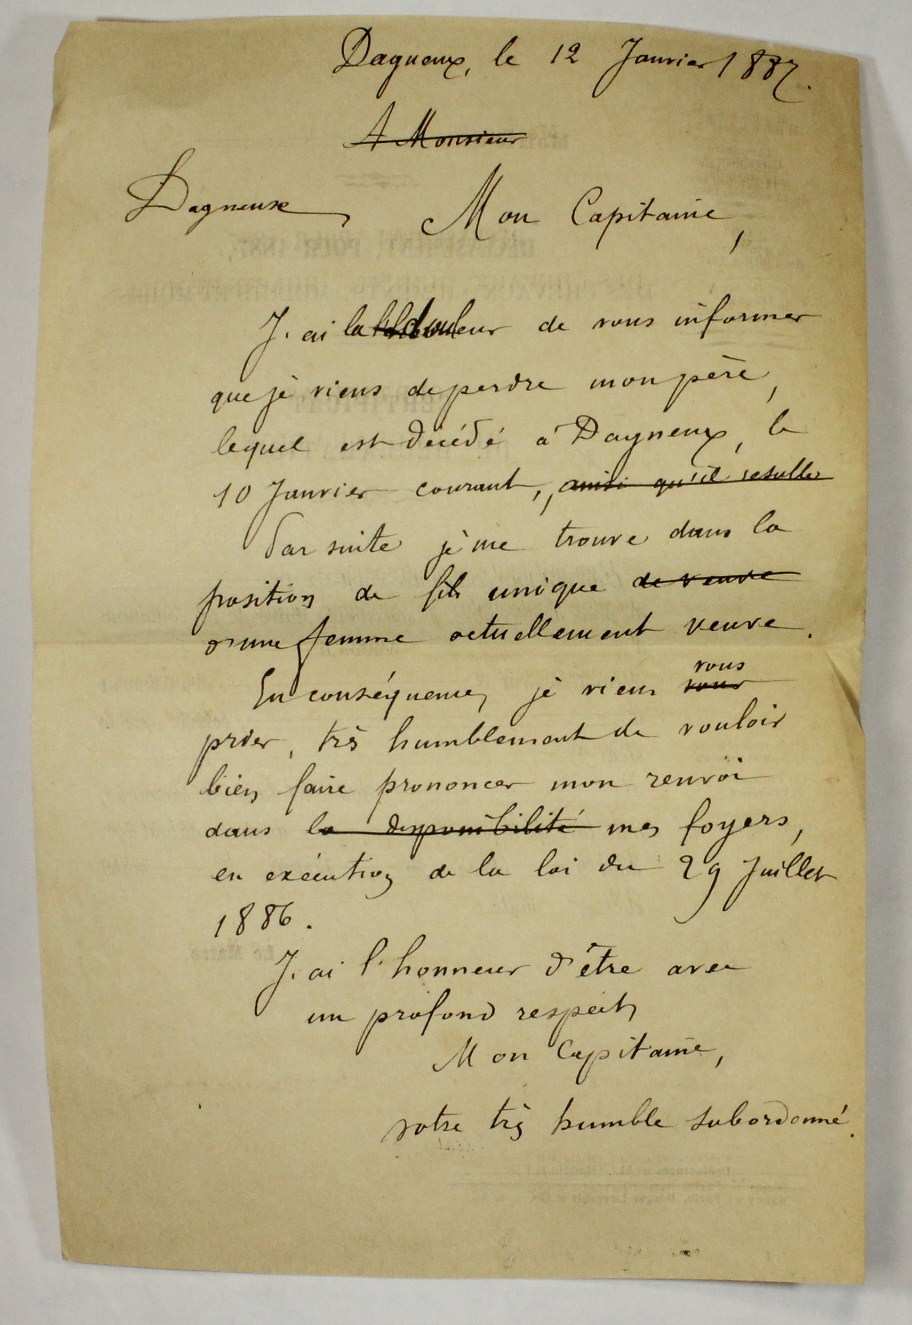 Dagneux, le 12 Janvier 1887.
A Monsieur
Dagneux
Mon Capitaine,
J'ai la douleur de vous informer
que je viens de perdre mon père,
lequel est décédé à Dagneux, le
10 Janvier courant, ainsi qu'il résulte
Par suite je me trouve dans la
position de fils unique de veuve
d'une femme actuellement veuve.
En conséquence, je viens vous vous
prier, très humblement de vouloir
bien faire prononcer mon renvoi
dans la disponibilité mes foyers,
en exécution de la loi du 29 Juillet
1886.
J'ai l'honneur d'être avec
un profond respect,
Mon Capitaine,
votre très humble subordonné.